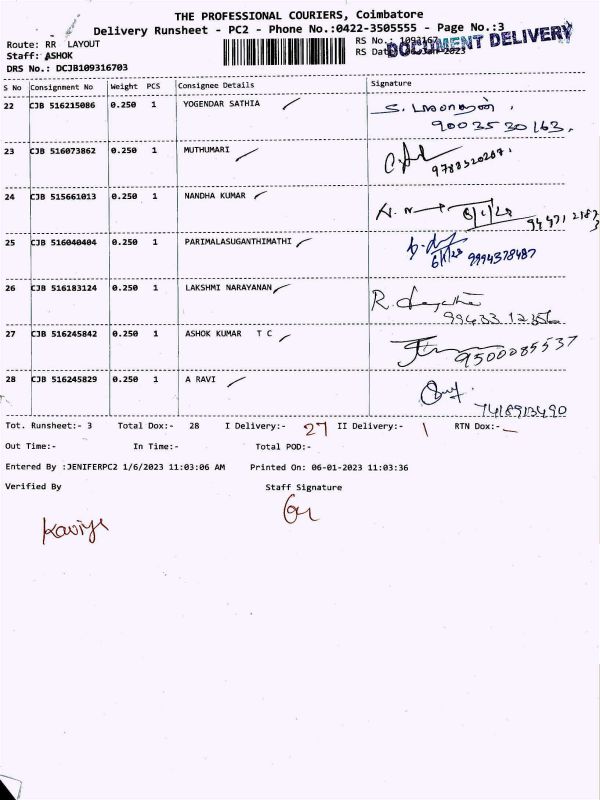 THE PROFESSIONAL COURIERS, Coimbatore
Delivery Runsheet - PC2 - Phone No.:0422-3505555 - Page No.:3
Route: RR LAYOUT
RS No.: 1093167
DOCUMENT DELIVERY
Staff: ASHOK
RS Date
DRS No.: DCJB109316703
S No Consignment No Weight PCS Consignee Details Signature
22 CJB 516215086 0.250 1 YOGENDAR SATHIA
9003530163.
23 CJB 516073862 0.250 1 MUTHUMARI
9788320287.
24 CJB 515661013 0.250 1 NANDHA KUMAR
6/1/23
25 CJB 516040404 0.250 1 PARIMALASUGANTHIMATHI
6/1/23 9994378487
26 CJB 516183124 0.250 1 LAKSHMI NARAYANAN
99433 12356
27 CJB 516245842 0.250 1 ASHOK KUMAR T C
9500085537
28 CJB 516245829 0.250 1 A RAVI
7418913490
Tot. Runsheet:- 3 Total Dox:- 28 I Delivery:- 27 II Delivery:- 1 RTN Dox:- —
Out Time:- In Time:- Total POD:-
Entered By :JENIFERPC2 1/6/2023 11:03:06 AM Printed On: 06-01-2023 11:03:36
Verified By Staff Signature
Kaviya